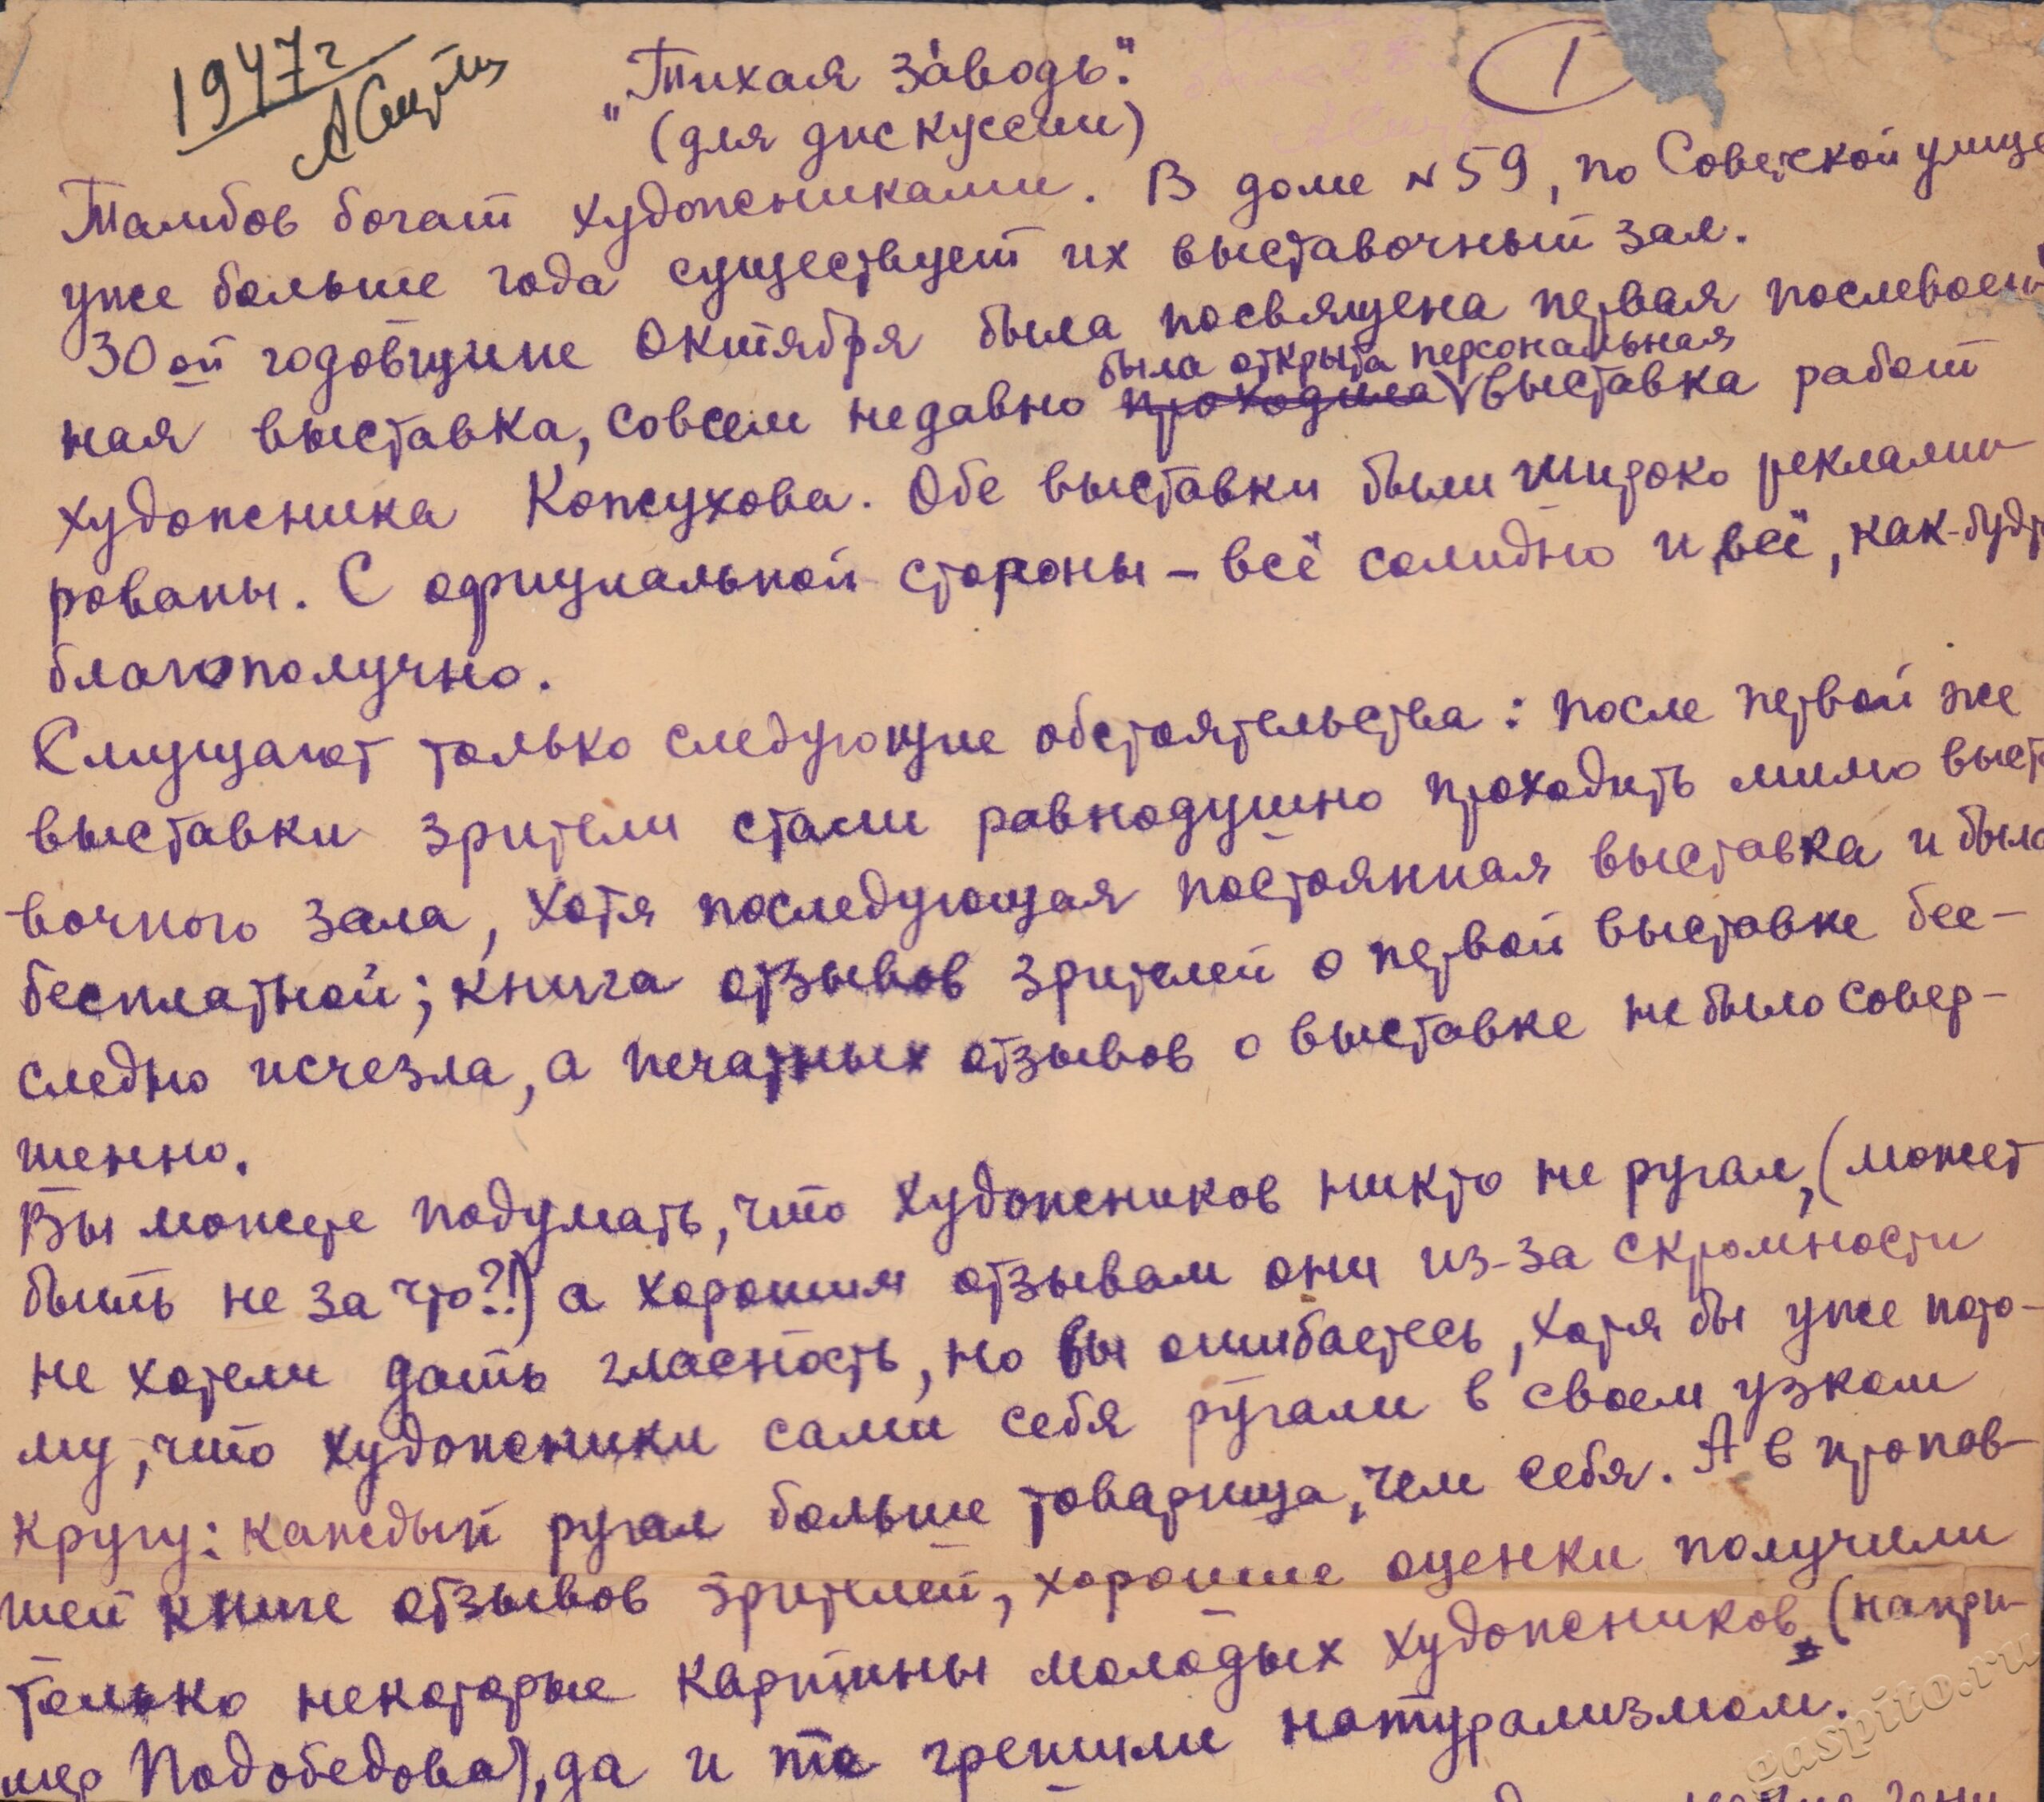 1947 г
"Тихая за́водь".
1
"(для дискуссии)
Тамбов богат художниками. В доме N 59, по Советской улице
уже больше года существует их выставочный зал.
30ой годовщине Октября была посвящена первая послевоен
была открыта персональная
ная выставка, совсем недавно проходила выставка работ
художника Кожухова. Обе выставки были широко реклами-
рованы. С официальной стороны – всё солидно и всё, как-будто
благополучно.
Смущают только следующие обстоятельства: после первой же
выставки зрители стали равнодушно проходить мимо выст
вочного зала, хотя последующая постоянная выставка и была
бесплатной; книга отзывов зрителей о первой выставке бес-
следно исчезла, а печатных отзывов о выставке не было совер-
шенно.
Вы можете подумать, что художников никто не ругал, (может
быть не за что?!) а хорошим отзывам они из-за скромности
не хотели дать гласность, но вы ошибаетесь, хотя бы уже пото-
му, что художники сами себя ругали в своем узком
кругу: каждый ругал больше товарища, чем себя. А в пропав-
шей книге отзывов зрителей, хорошие оценки получили
только некоторые картины молодых художников, (напри-
мер Подобедова), да и те грешили натурализмом.
gaspito.ru